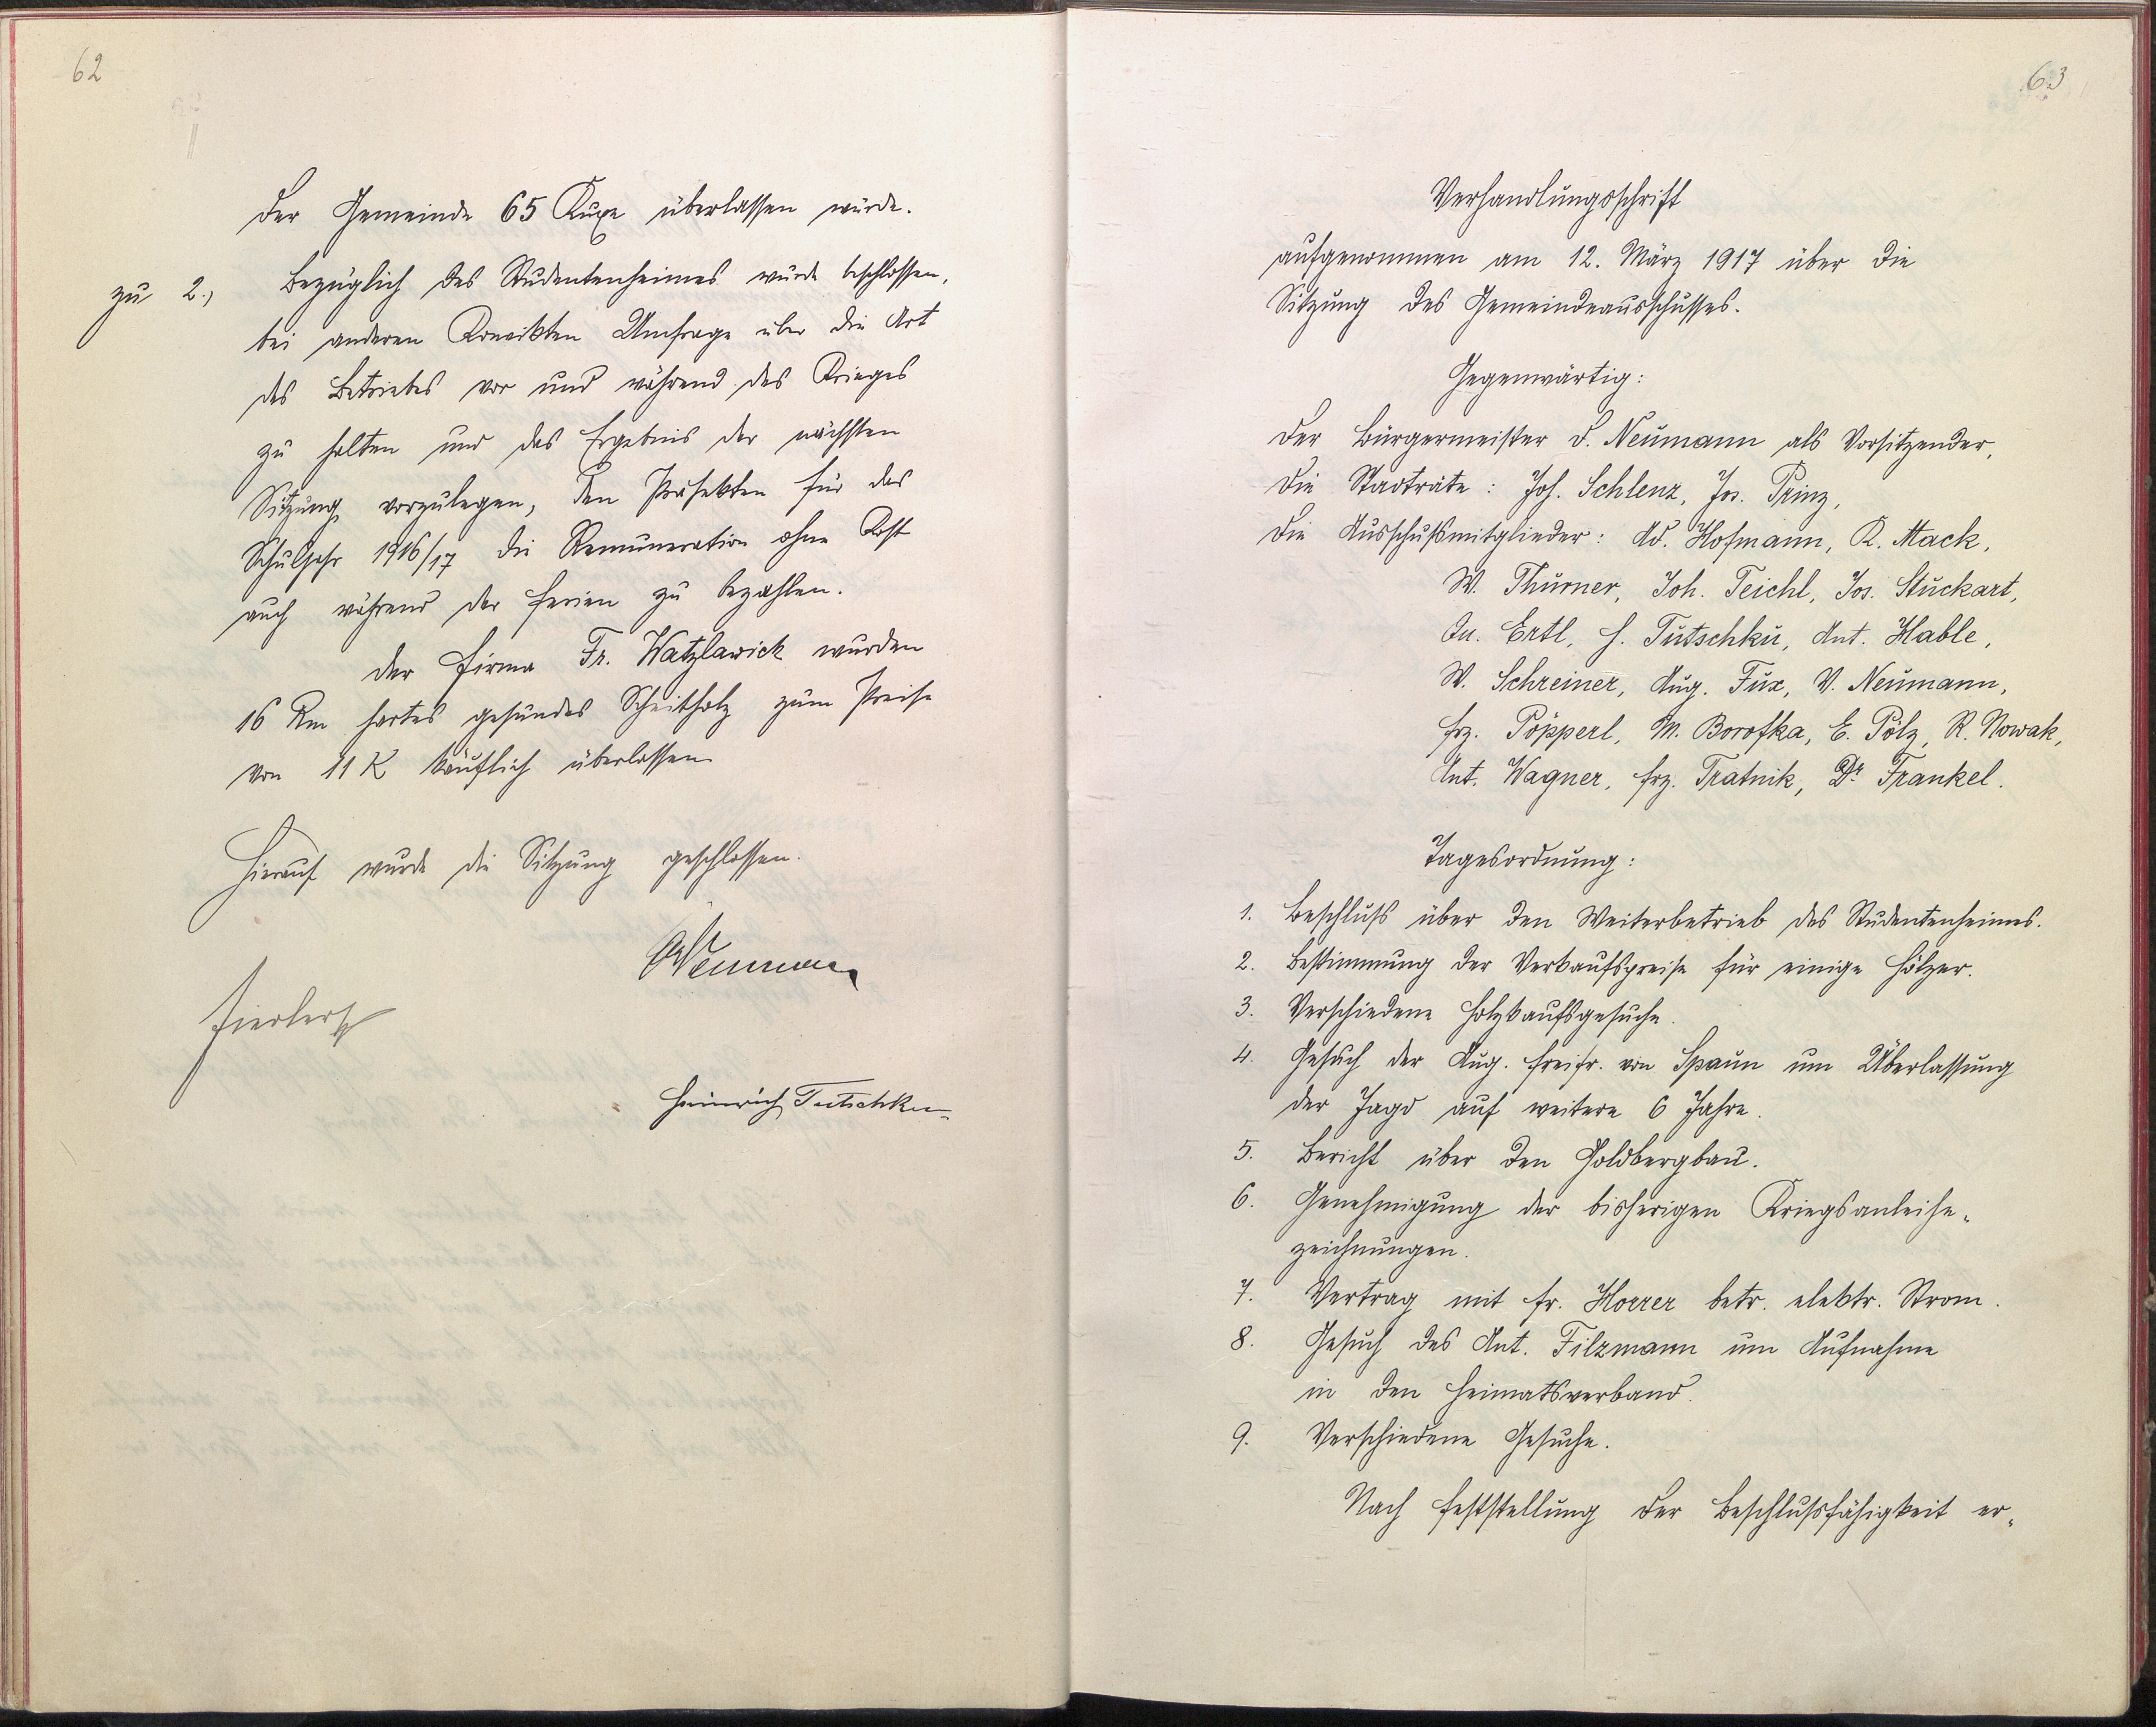 62
der Gemeinde 65 Kuxe überlassen würde.
zu 2., Bezüglich des Studentenheimes wurde beschlossen,
bei anderen Konvikten Umfrage über die Art
des Betriebes vor und während des Krieges
zu halten und das Ergebnis der nächsten
Sitzung vorzulegen, den Präfekten für das
Schuljahr 1916/17 die Remuneration ohne Kost
auch während der Ferien zu bezahlen.
Der Firma Fr. Watzlawick wurden
16 Rm hartes gesundes Scheitholz zum Preise
von 11 K käuflich überlassen
Hierauf wurde die Sitzung geschlossen.
Neumann
Heinrich Tutschku
63
Verhandlungsschrift
aufgenommen am 12. März 1917 über die
Sitzung des Gemeindeausschusses.
Gegenwärtig:
Der Bürgermeister D. Neumann als Vorsitzender,
Die Stadträte: Joh. Schlenz, Jos. Prinz,
Die Ausschußmitglieder: Ad. Hofmann, K. Mack,
W. Thurner, Joh. Teichl, Jos. Stuckart,
Qu. Ertl, H. Tutschku, Ant. Hable,
W. Schreiner, Aug. Fux, V. Neumann,
Frz. Pöpperl, M. Borofka, E. Pölz, R. Nowak,
Ant. Wagner, Frz. Tratnik, Dr Frankel.
Tagesordnung:
1. Beschluß über den Weiterbetrieb des Studentenheimes.
2. Bestimmung der Verkaufspreise für einige Hölzer.
3. Verschiedene Holzkaufsgesuche.
4. Gesuch der Aug. Freifr. von Spaun um Überlassung
der Jagd auf weitere 6 Jahre.
5. Bericht über den Goldbergbau.
6. Genehmigung der bisherigen Kriegsanleihe-
zeichnungen.
7. Vertrag mit Fr. Horrer betr. elektr. Strom.
8. Gesuch des Ant. Filzmann um Aufnahme
in den Heimatsverband.
9. Verschiedene Gesuche.
Nach Feststellung der Beschlußfähigkeit er-